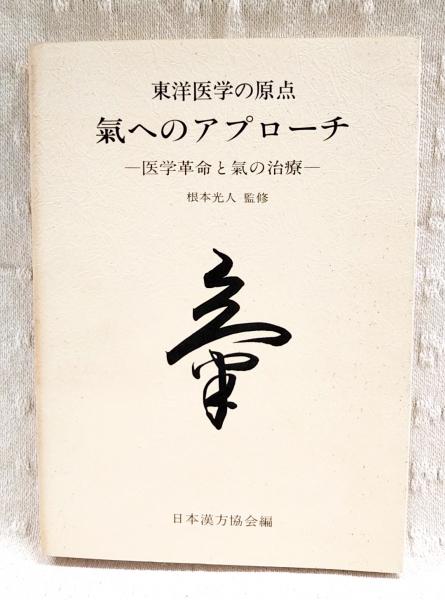 東洋医学の原点
氣へのアプローチ
―医学革命と氣の治療―
根本光人 監修
氣
日本漢方協会編